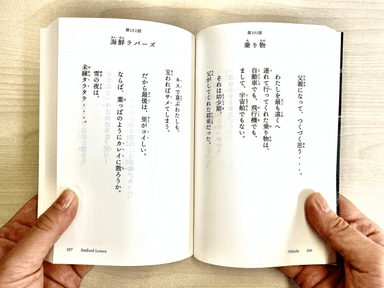 第101話
乗り物
父親になって、つくづく思う・・・。
わたしを最も遠くへ
連れて行ってくれた乗り物は、
自動車でも、飛行機でも、
まして、宇宙船でもない。
それは幼少期、
父がしてくれた肩車だった。
Vehicle 106
第102話
海鮮ラバーズ
キスで喜ぶわたしも、
交わればサメてしまう。
だから最後は、里がコイしい。
ならば、葉っぱのようにカレイに散ろうか。
雪の夜は、
未練タラタラ・・・・。
107 Seafood Lovers